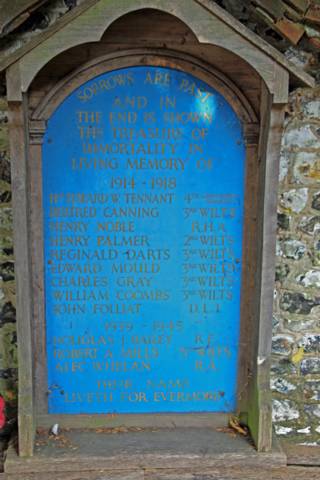 SORROWS ARE PAST
AND IN
THE END IS SHOWN
THE TREASURE OF
IMMORTALITY IN
LIVING MEMORY OF
1914 - 1918
EDWARD W TENNANT 4TH
CANNING 3RD WILTS
HENRY NOBLE R.H.A
HENRY PALMER 2ND WILTS
REGINALD DARTS 3RD WILTS
EDWARD MOULD 3RD WILTS
CHARLES GRAY 3RD WILTS
WILLIAM COOMBS 3RD WILTS
JOHN FOLLIAT D.L.I.
1939 - 1945
DOUGLAS J BAILEY R.E
ROBERT A MILLS WILTS
ALEC WHELAN R.A
THEIR NAME
LIVETH FOR EVERMORE